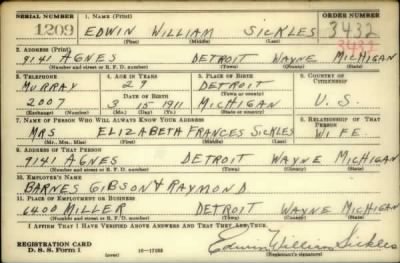 SERIAL NUMBER 1. NAME (Print) ORDER NUMBER
1209 EDWIN WILLIAM SICKLES 3432
(First) (Middle) (Last) 3432
2. ADDRESS (Print)
9141 AGNES DETROIT WAYNE MICHIGAN
(Number and street or R. F. D. number) (Town) (County) (State)
3. TELEPHONE 4. AGE IN YEARS 5. PLACE OF BIRTH 6. COUNTRY OF CITIZENSHIP
MURRAY 29 DETROIT
DATE OF BIRTH (Town or county)
2007 3 15 1911 MICHIGAN U. S.
(Exchange) (Mo.) (Day) (Yr.) (State or country)
7. NAME OF PERSON WHO WILL ALWAYS KNOW YOUR ADDRESS 8. RELATIONSHIP OF THAT PERSON
MRS ELIZABETH FRANCES SICKLES WIFE
(Mr., Mrs., Miss) (First) (Middle) (Last)
9. ADDRESS OF THAT PERSON
9141 AGNES DETROIT WAYNE MICHIGAN
(Number and street or R. F. D. number) (Town) (County) (State)
10. EMPLOYER'S NAME
BARNES GIBSON & RAYMOND
11. PLACE OF EMPLOYMENT OR BUSINESS
6400 MILLER DETROIT WAYNE MICHIGAN
(Number and street or R. F. D. number) (Town) (County) (State)
I AFFIRM THAT I HAVE VERIFIED ABOVE ANSWERS AND THAT THEY ARE TRUE.
REGISTRATION CARD
D. S. S. Form 1 (over) Edwin William Sickles
(Registrant's signature)